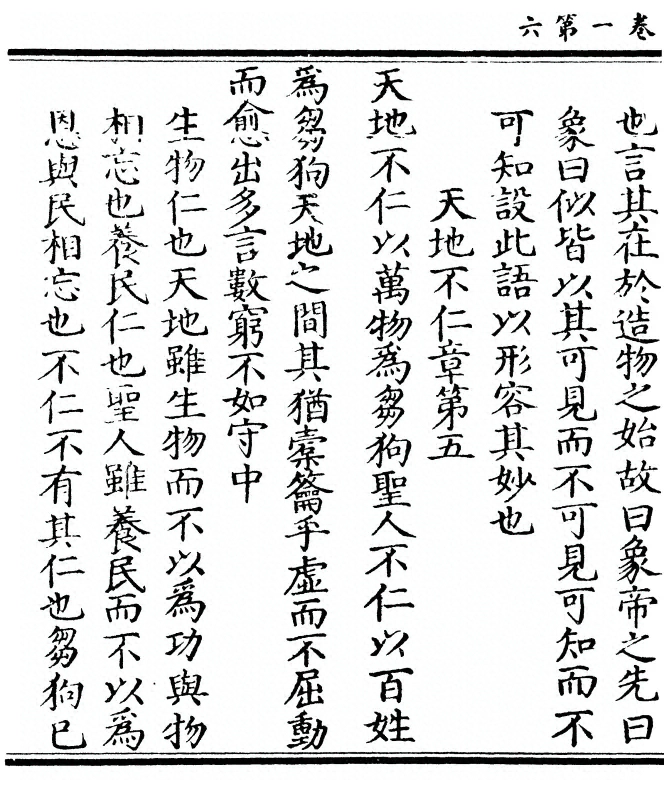 卷一第六
也言其在於造物之始故曰象帝之先曰
象曰似皆以其可見而不可見可知而不
可知設此語以形容其妙也
天地不仁章第五
天地不仁以萬物為芻狗聖人不仁以百姓
為芻狗天地之間其猶橐籥乎虛而不屈動
而愈出多言數窮不如守中
生物仁也天地雖生物而不以為功與物
相忘也養民仁也聖人雖養民而不以為
恩與民相忘也不仁不有其仁也芻狗已